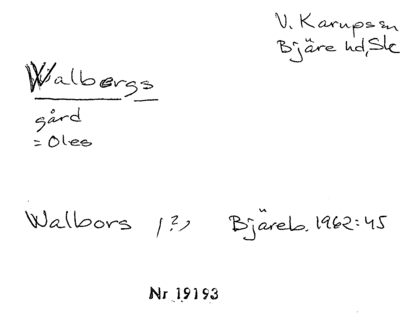 V. Karups sn
Bjäre hd, Sk
Walbergs
gård
= Oles
Walbors (?) Bjäreb. 1962:45
Nr 19193